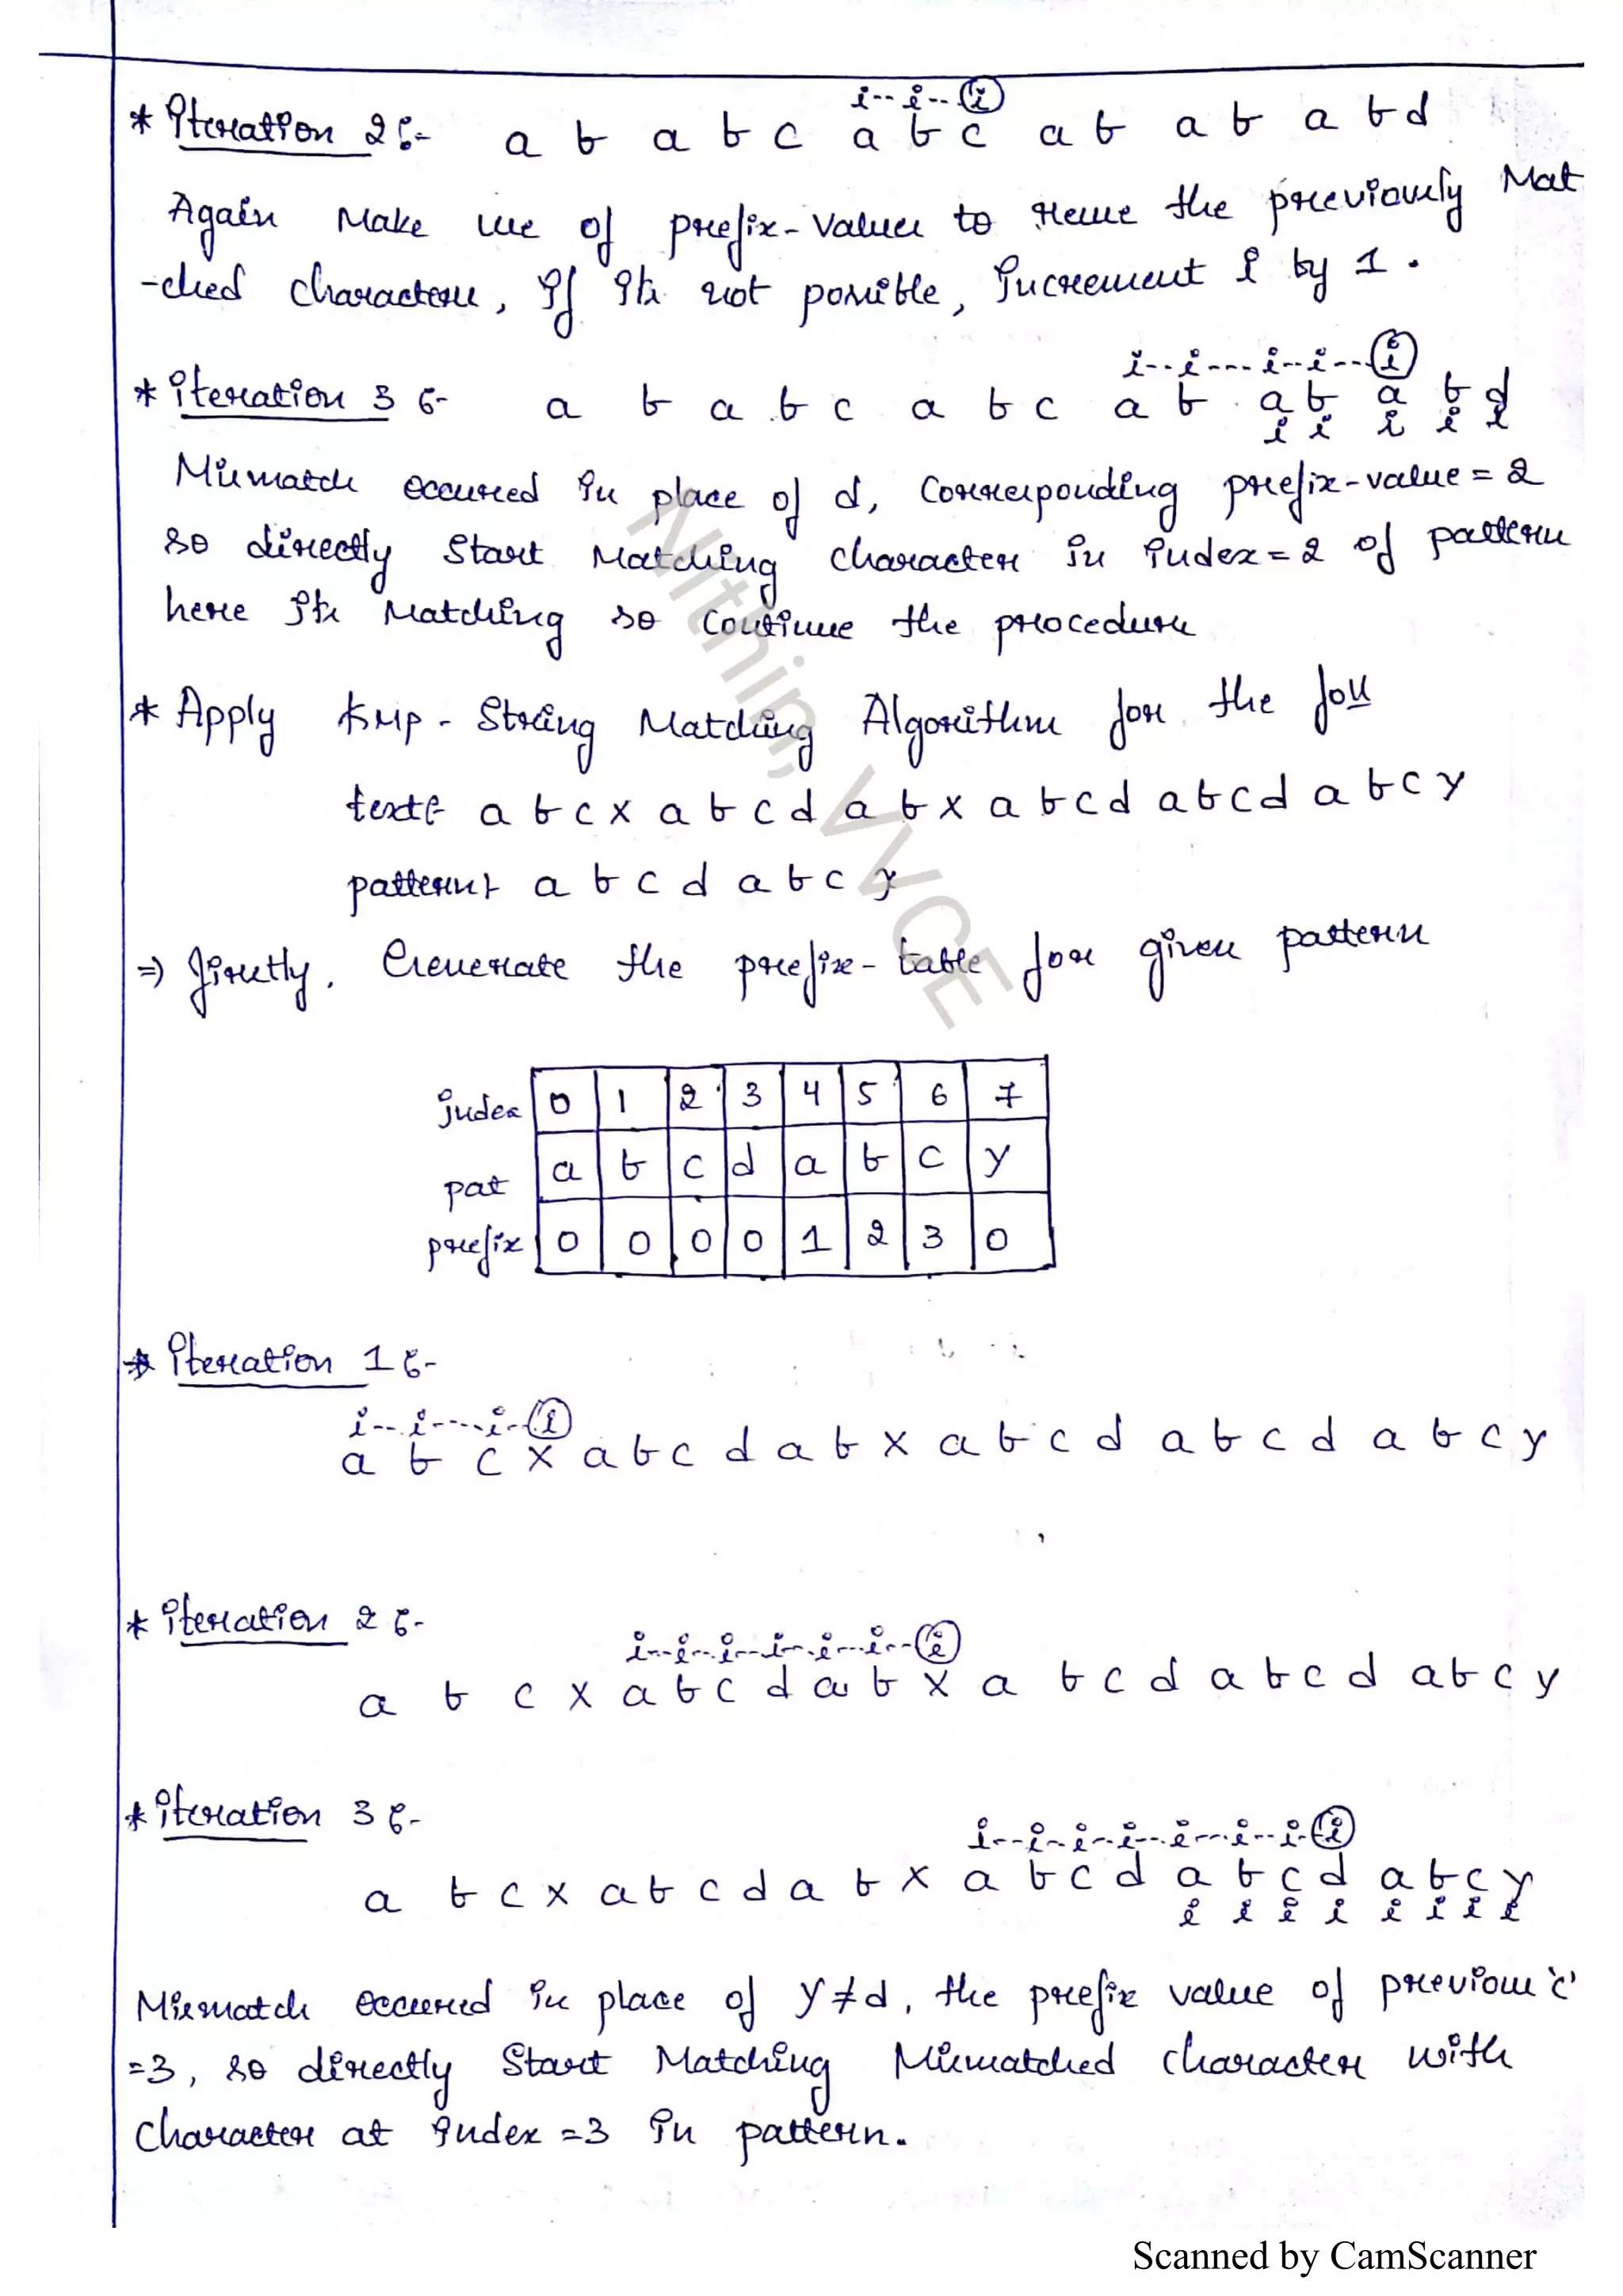 i-- i-- i
* Iteration 2 :- a b a b c a b c a b a b a b d
Again Make use of prefix-values to reuse the previously Mat
-ched characters, If Its not possible, Increment i by 1.
i-- i--- i-- i-- i
* iteration 3 :- a b a b c a b c a b a b a b d
i i i i i
Mismatch occured in place of d, Corresponding prefix-value = 2
so directly Start Matching character in index = 2 of pattern
here Its Matching so Continue the procedure
* Apply KMP - String Matching Algorithm for the foll
text:- a b c x a b c d a b x a b c d a b c d a b c y
pattern:- a b c d a b c y
⇒ firstly, Generate the prefix-table for given pattern
index 0 1 2 3 4 5 6 7
pat a b c d a b c y
prefix 0 0 0 0 1 2 3 0
* Iteration 1 :-
i-- i---- i-- i
a b c x a b c d a b x a b c d a b c d a b c y
* iteration 2 :-
i-- i-- i-- i-- i-- i-- i
a b c x a b c d a b x a b c d a b c d a b c y
* iteration 3 :-
i-- i-- i-- i-- i-- i-- i-- i
a b c x a b c d a b x a b c d a b c d a b c y
i i i i i i i i
Mismatch occured in place of y ≠ d, the prefix value of previous 'c'
=3, so directly Start Matching Mismatched character with
character at index =3 in pattern.
Nithin, VVCE
Scanned by CamScanner